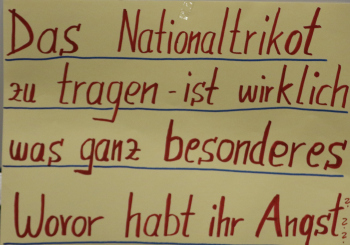 Das Nationaltrikot
zu tragen - ist wirklich
was ganz besonderes
Wovor habt ihr Angst ???